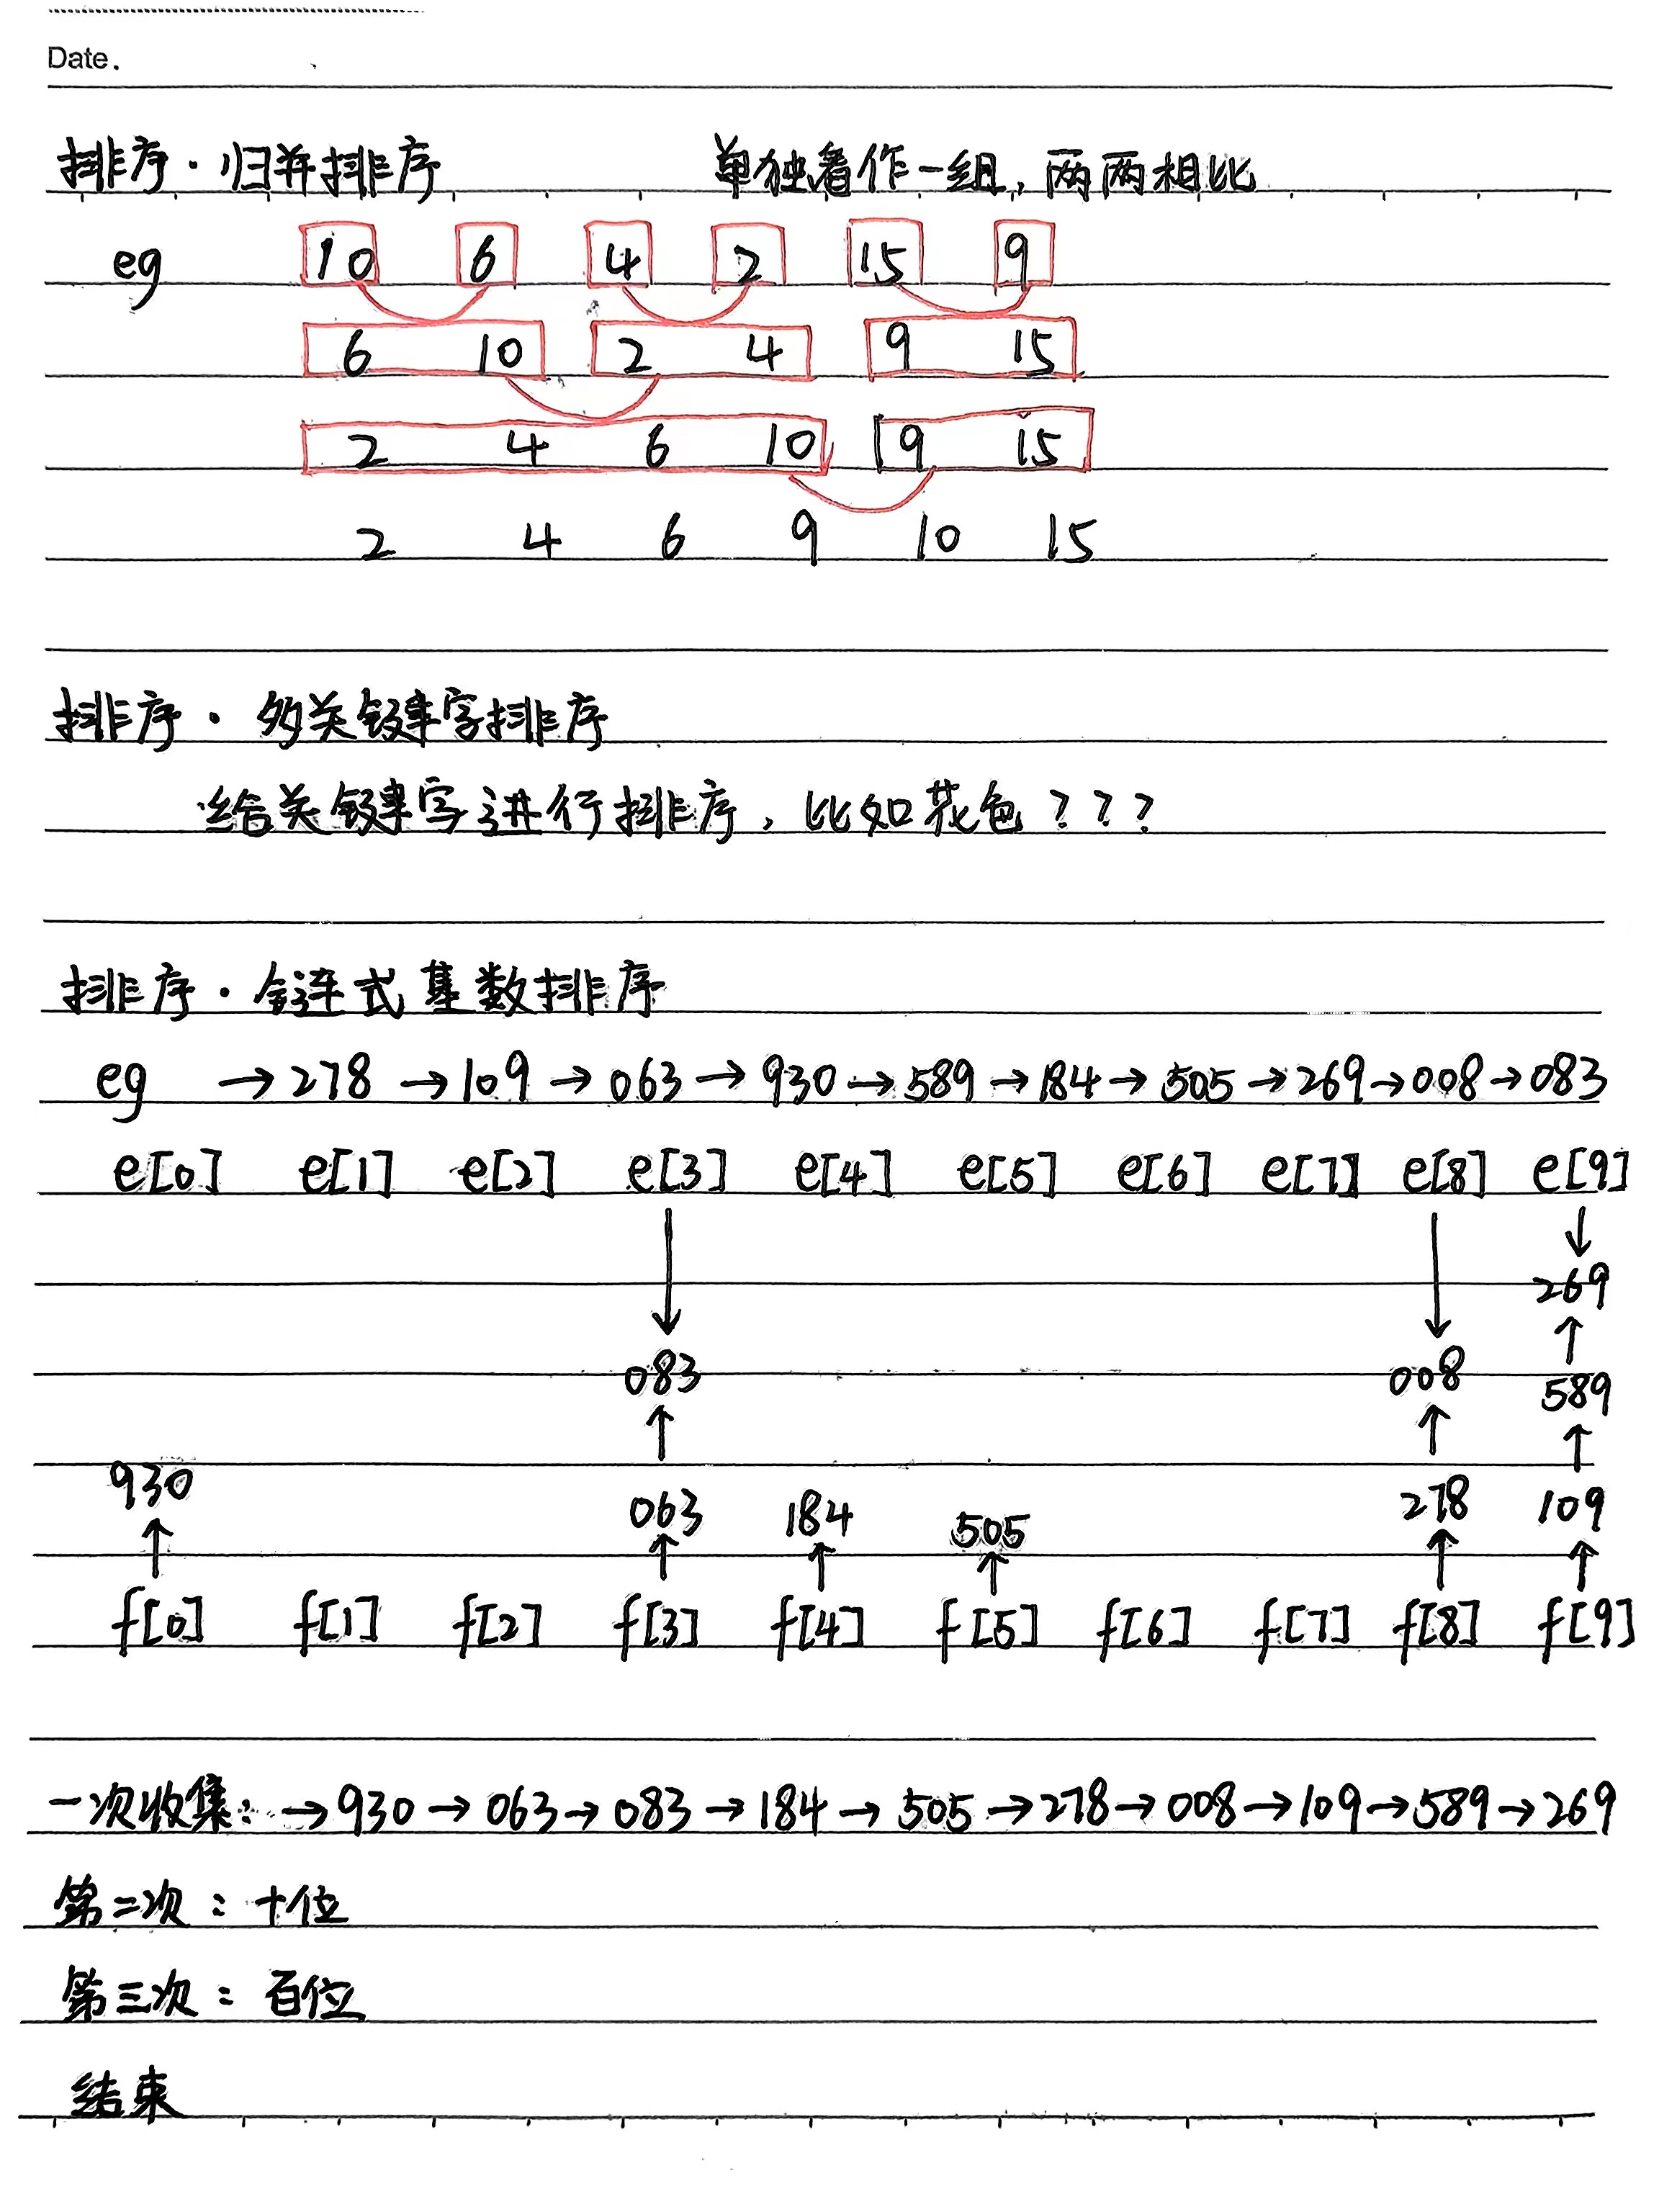 Date.
排序·归并排序 单独看作一组,两两相比
eg 10 6 4 2 15 9
6 10 2 4 9 15
2 4 6 10 9 15
2 4 6 9 10 15
排序·多关键字排序
给关键字进行排序,比如花色???
排序·链式基数排序
eg →278→109→063→930→589→184→505→269→008→083
e[0] e[1] e[2] e[3] e[4] e[5] e[6] e[7] e[8] e[9]
↓ ↓ ↓
269
↑
083 008 589
↑ ↑ ↑
930 063 184 505 278 109
↑ ↑ ↑ ↑ ↑ ↑
f[0] f[1] f[2] f[3] f[4] f[5] f[6] f[7] f[8] f[9]
一次收集:→930→063→083→184→505→278→008→109→589→269
第二次:十位
第三次:百位
结束